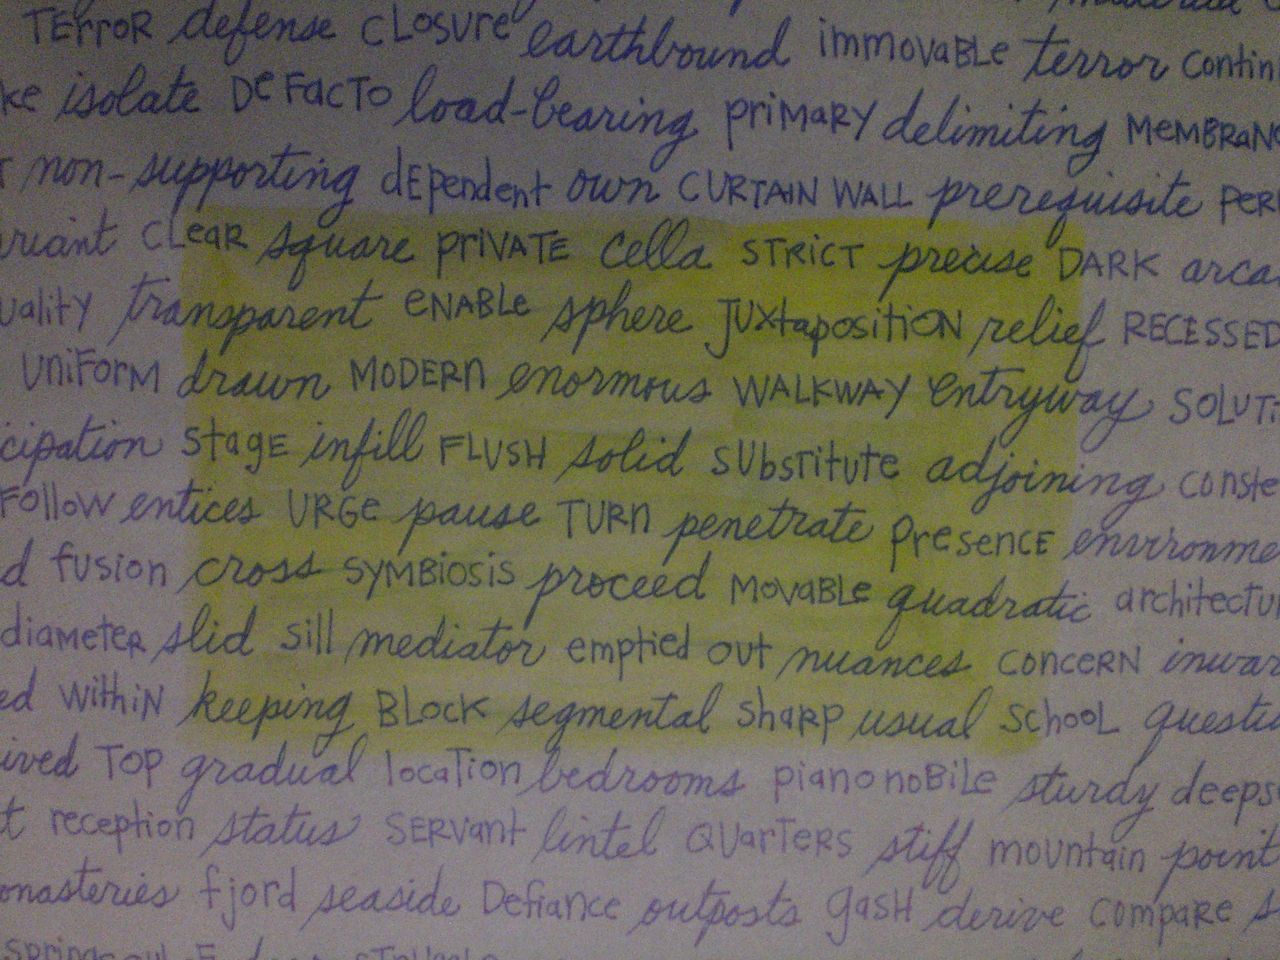 TERROR defense CLOSURE earthbound immovABLE terror contin
ke isolate DeFACTO load-bearing PRIMARY delimiting MeMBRAN
non-supporting dEPendent own CURTAIN WALL prerequisite PER
ariant CLeAR square PRiVATE cella STRICT precise DARK arca
uality transparent eNABLe sphere JUXtapositiON relief RECESSED
UNiFORM drawn MODERN enormous WALKWAY entryway SOLUTi
cipation StagE infill FLUSH solid SUbstitute adjoining conste
FOLLOW entices URGe pause TURN penetrate PresENCE environme
d fusion cross SYMBiOSiS proceed MOVABLe quadratic architectu
diameteR slid Sill mediator emptied out nuances CONCERN inwar
ed WithiN keeping BLOCK segmental ShARP usual SchOOL questi
ived TOP gradual location bedrooms piano noBiLe sturdy deeps
t reception status SERVant lintel QUARTERS stiff mountain point
onasteries fjord seaside Defiance outposts gash derive compare s